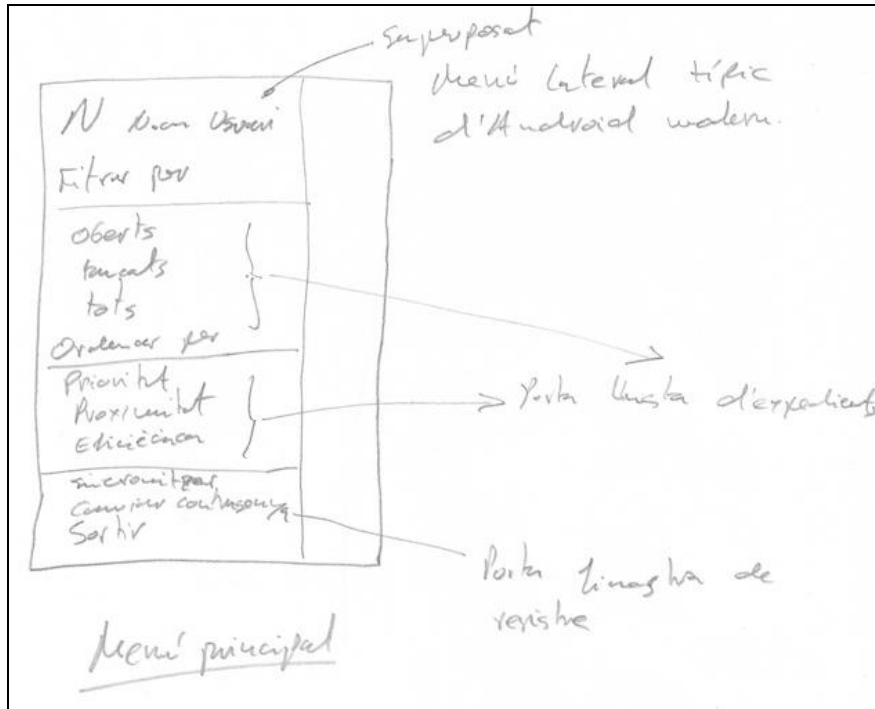 Superposat
Menú lateral típic
d'Android modern.
N Nom Usuari
Filtrar per
oberts
tancats
tots
Ordenar per
Prioritat
Proximitat
Eficiència
Sincronitzar
Canviar contrasenya
Sortir
Porta llista d'expedients
Porta finestra de
registre
Menú principal